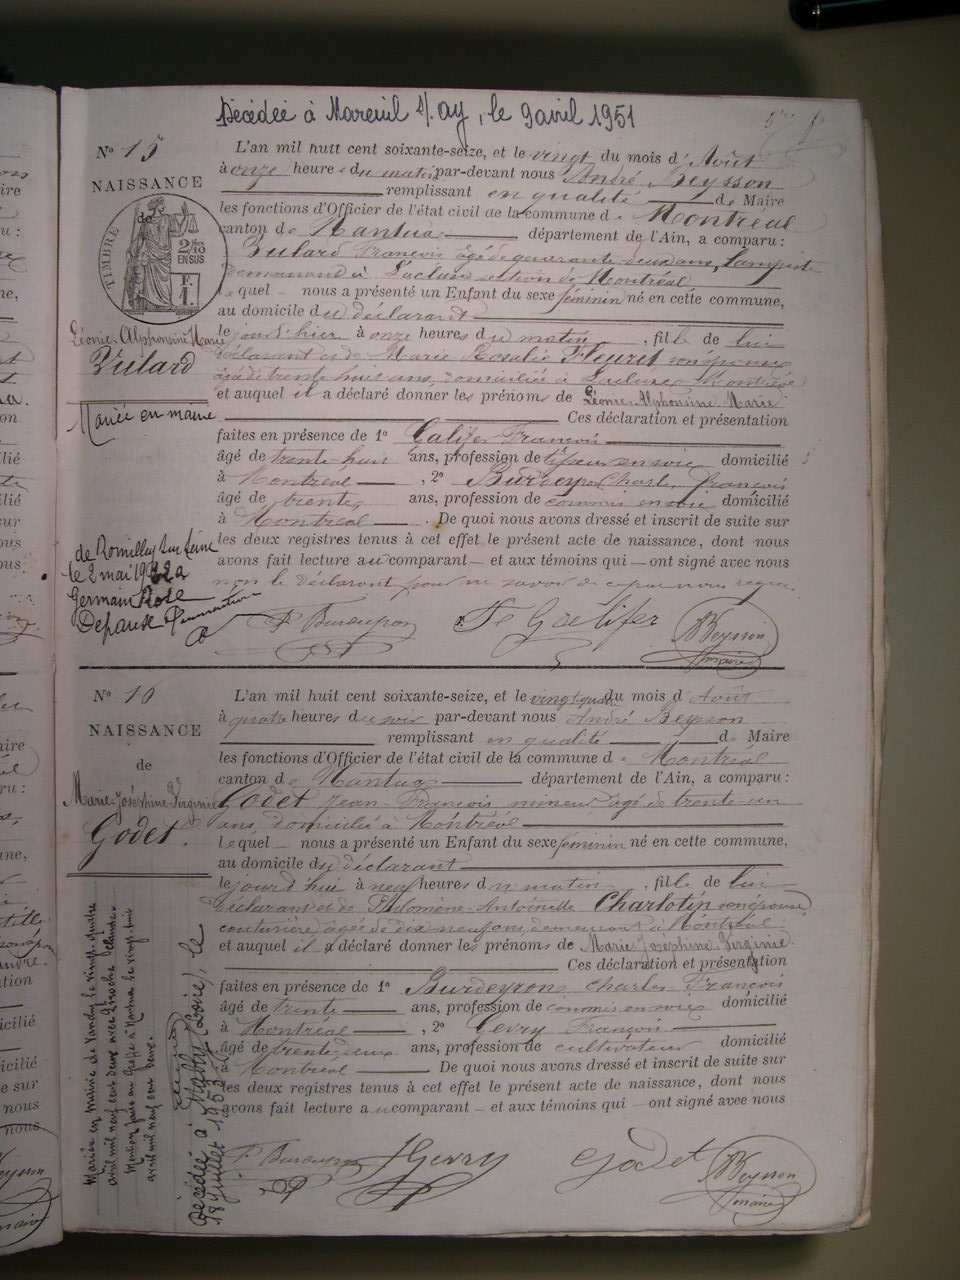 Décédée à Mareuil s/ ay, le 9 avril 1951
N° 15
NAISSANCE
de
TIMBRE
2/10 EN SUS
Léonie-Alphonsine-Marie
Vulard
Mariée en mairie
de Romilly sur Seine
le 2 mai
Germain
L'an mil huit cent soixante-seize, et le vingt du mois d'Août
à onze heures du matin par-devant nous André Beysson
remplissant en qualité de Maire
les fonctions d'Officier de l'état civil de la commune de Montréal
canton de Nantua département de l'Ain, a comparu :
Vulard François âgé de quarante-deux ans,
demeurant à section de Montréal
lequel nous a présenté un Enfant du sexe féminin né en cette commune,
au domicile du déclarant
le jour d'hier à onze heures du matin, fille de lui
déclarant et de Marie Rosalie Fleuret son épouse
âgée de trente huit ans, domiciliés à
et auquel il a déclaré donner les prénoms de Léonie-Alphonsine-Marie
Ces déclaration et présentation
faites en présence de 1° François
âgé de trente-huit ans, profession de tisseur en soie domicilié
à Montréal, 2° Burdeyron Charles François
âgé de trente ans, profession de commis en soie domicilié
à Montréal. De quoi nous avons dressé et inscrit de suite sur
les deux registres tenus à cet effet le présent acte de naissance, dont nous
avons fait lecture au comparant et aux témoins qui ont signé avec nous
non le déclarant pour ne savoir de ce par nous requis
F. Burdeyron
A Beysson
maire
N° 16
NAISSANCE
de
Marie-Joséphine-Virginie
Godet.
Mariée en mairie de le vingt-quatre
avril mil neuf cent deux avec
Mention faite au greffe à Nantua le vingt huit
avril mil neuf cent deux.
Décédée à Mably (Loire), le
18 juillet 1953
L'an mil huit cent soixante-seize, et le vingt quatre du mois d'Août
à quatre heures du soir par-devant nous André Beysson
remplissant en qualité de Maire
les fonctions d'Officier de l'état civil de la commune de Montréal
canton de Nantua département de l'Ain, a comparu :
Godet Jean-François mineur âgé de trente-un
ans, domicilié à Montréal
lequel nous a présenté un Enfant du sexe féminin né en cette commune,
au domicile du déclarant
le jour d'hui à neuf heures du matin, fille de lui
déclarant et de Philomène-Antoinette Charlotin son épouse
couturière âgée de dix neuf ans, demeurant à Montréal
et auquel il a déclaré donner les prénoms de Marie-Joséphine-Virginie
Ces déclaration et présentation
faites en présence de 1° Burdeyron Charles François
âgé de trente ans, profession de commis en soie domicilié
à Montréal, 2° Gevry François
âgé de trente-deux ans, profession de cultivateur domicilié
à Montréal. De quoi nous avons dressé et inscrit de suite sur
les deux registres tenus à cet effet le présent acte de naissance, dont nous
avons fait lecture au comparant et aux témoins qui ont signé avec nous
F. Burdeyron
F Gevry
Godet
A Beysson
maire